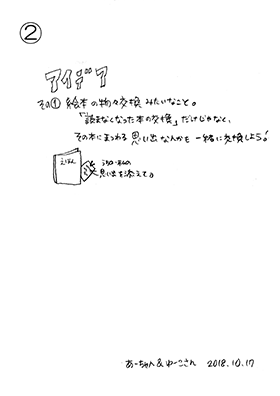 ②
アイデア
その① 絵本の物々交換みたいなこと。
「読まなくなった本の交換」だけじゃなく、
その本にまつわる思い出なんかも一緒に交換しよう!
えほん
思い出を添えて。
あーちゃん&ゆーこさん 2018.10.17